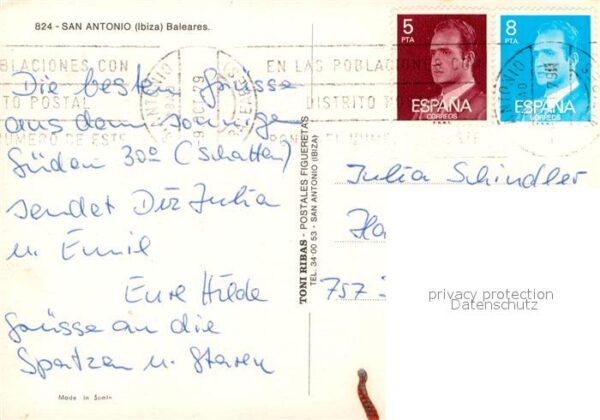 824 - SAN ANTONIO (Ibiza) Baleares.
BLACIONES CON
TO POSTAL
NUMERO DE ESTE
EN LAS POBLACIONES CON
DISTRITO
EL NUMERO DE
5
PTA
ESPAÑA
CORREOS
8
PTA
ESPAÑA
CORREOS
Die besten Grüsse
aus dem sonnigen
Süden 30° (Schatten)
sendet Dir Julia
u. Emil
Eure Hilde
Grüsse an die
Spatzen u. Staren
TONI RIBAS - POSTALES FIGUERETAS
TEL. 34 00 53 - SAN ANTONIO (IBIZA)
Julia Schindler
Ha
757
privacy protection
Datenschutz
Made in Spain